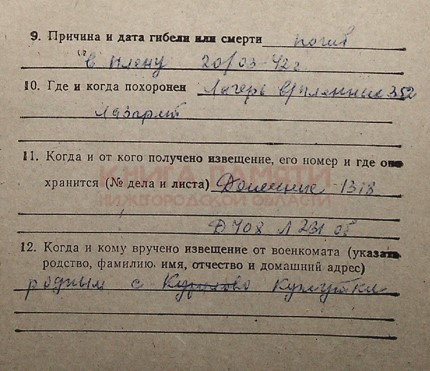 9. Причина и дата гибели или смерти погиб
в плену 20/03-42г
10. Где и когда похоронен Лагерь в/пленных 352
Лазарет
11. Когда и от кого получено извещение, его номер и где оно
хранится (№ дела и листа) Донесение 1318
КНИГА ПАМЯТИ
НИЖЕГОРОДСКОЙ ОБЛАСТИ
Д 408 Л 231 об
12. Когда и кому вручено извещение от военкомата (указать
родство, фамилию, имя, отчество и домашний адрес)
родным с